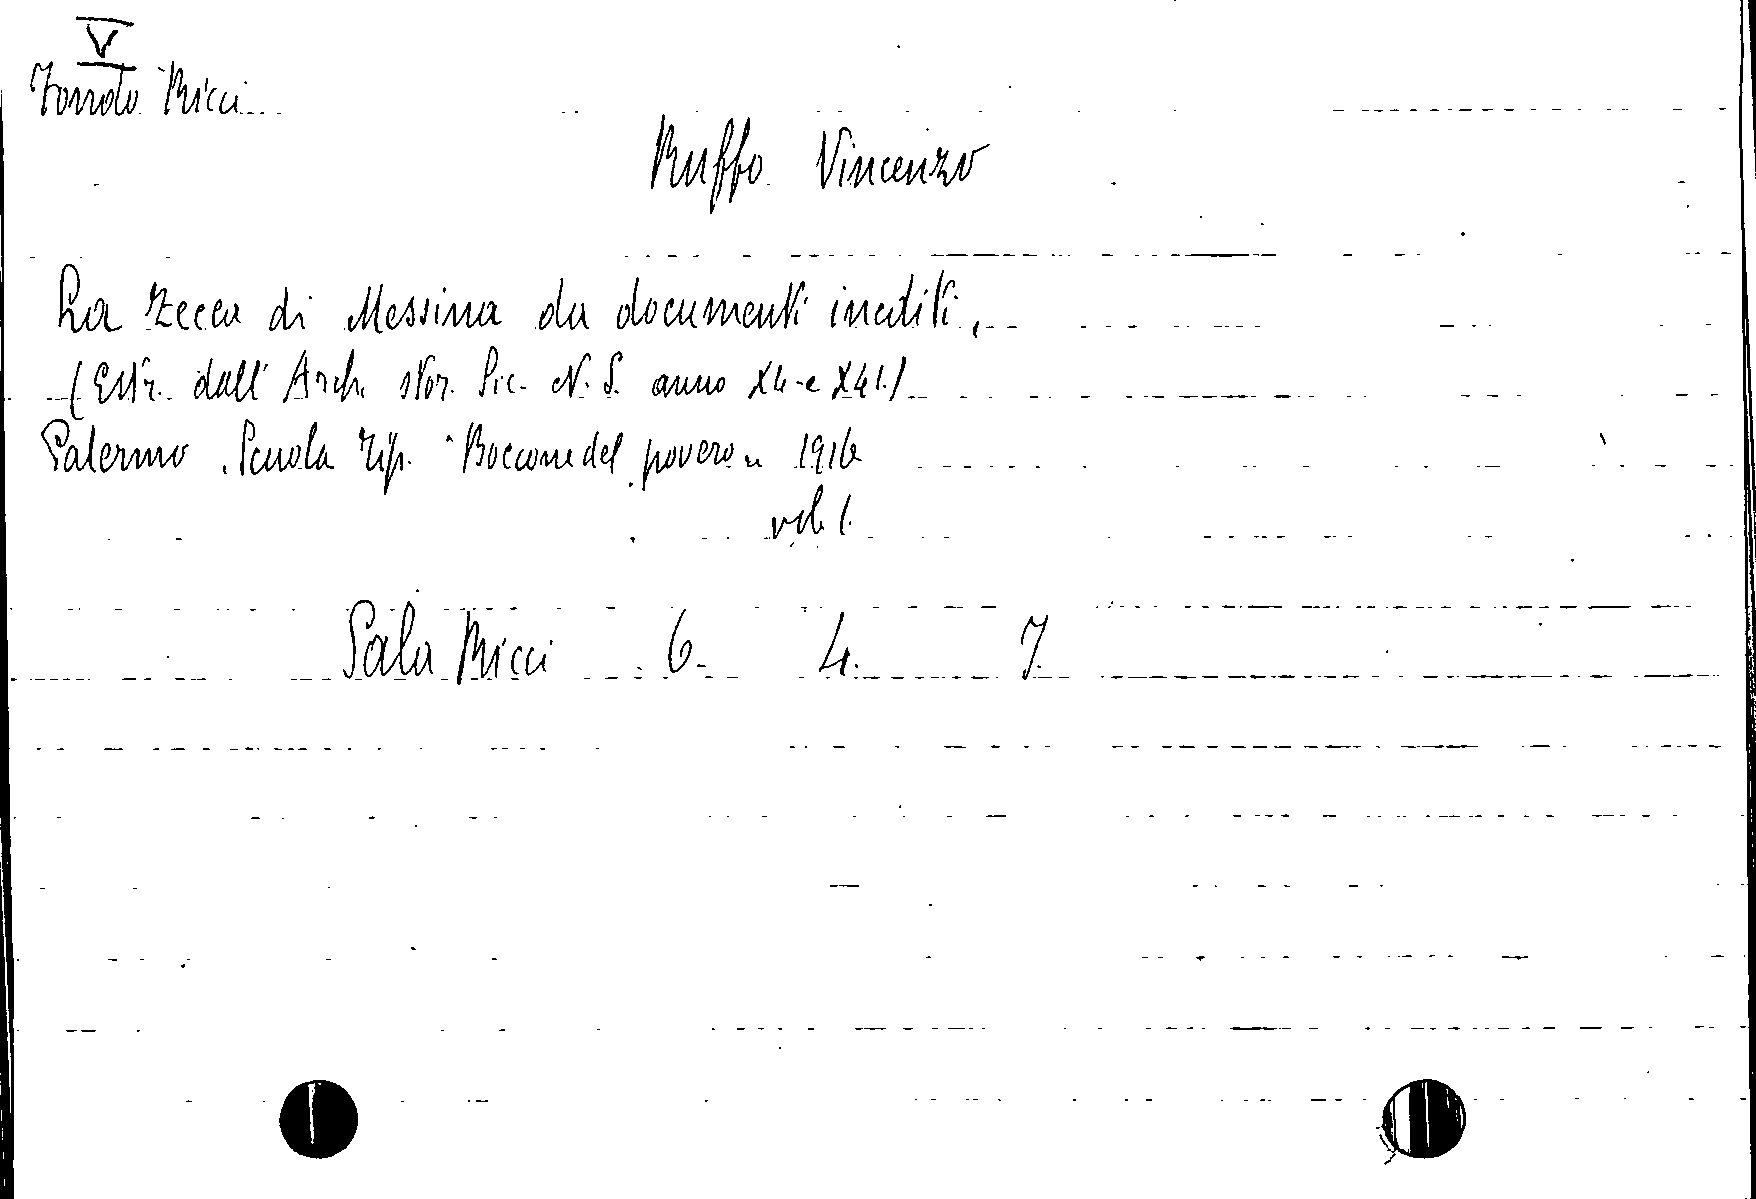 V
Fondo Ricci
Ruffo Vincenzo
La Zecca di Messina da documenti inediti.
(Estr. dall' Arch. Stor. Sic. N. S. anno XL e XLI.)
Palermo. Scuola Tip. "Boccone del povero" 1916
vol. 1.
Sala Ricci 6. 4. 7.